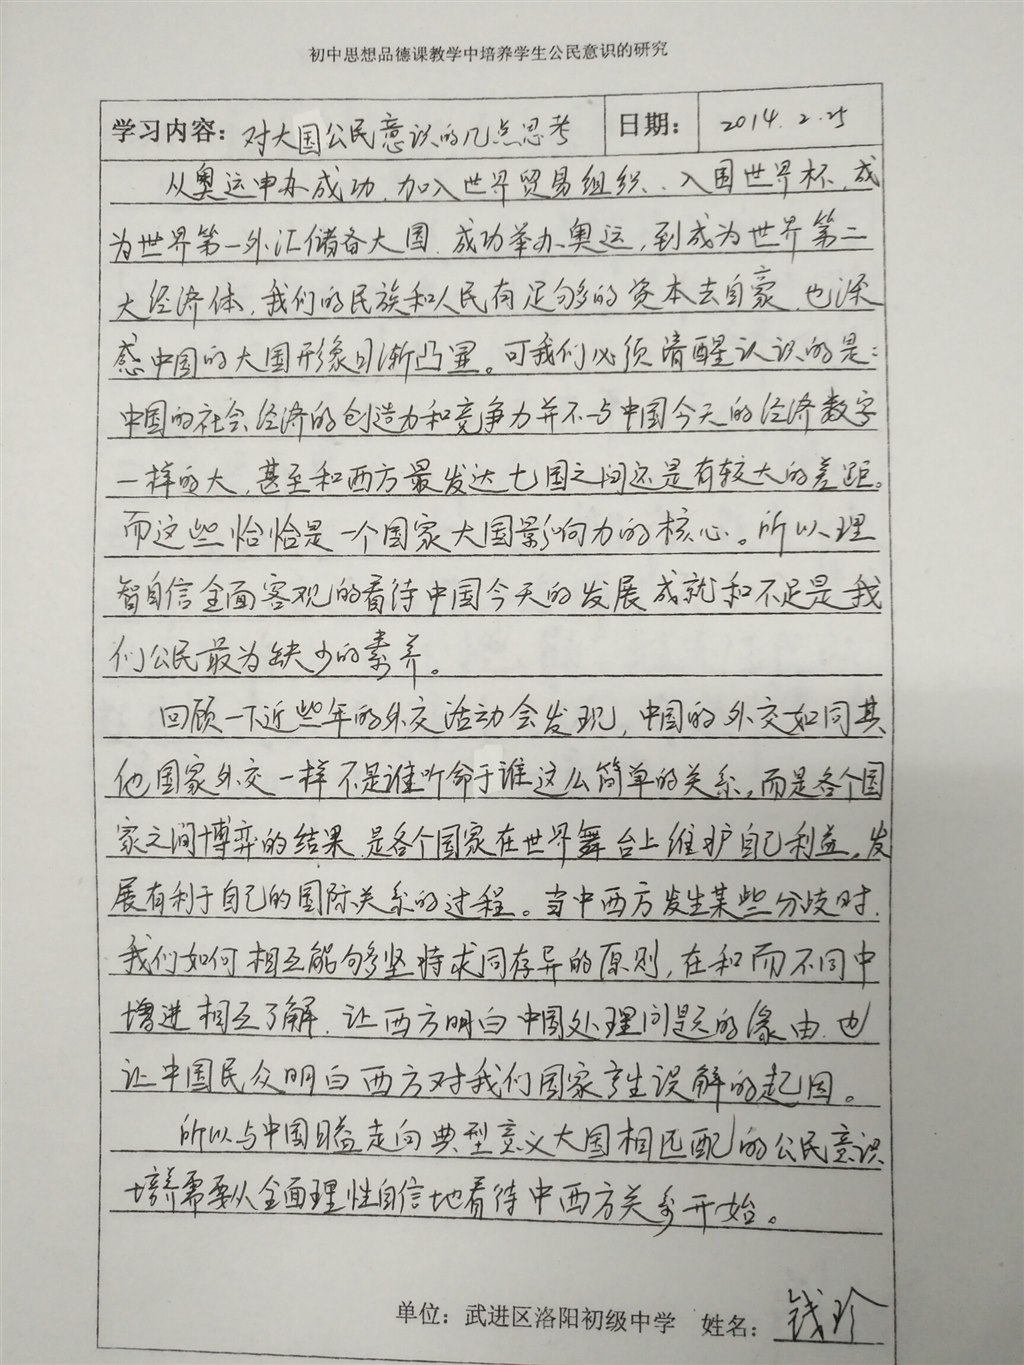 初中思想品德课教学中培养学生公民意识的研究
学习内容：对大国公民意识的几点思考 日期：2014.2.25
从奥运申办成功，加入世界贸易组织、入围世界杯，成
为世界第一外汇储备大国，成功举办奥运，到成为世界第二
大经济体，我们的民族和人民有足够的资本去自豪，也深
感中国的大国形象日渐凸显。可我们必须清醒认识的是：
中国的社会经济的创造力和竞争力并不与中国今天的经济数字
一样的大，甚至和西方最发达七国之间还是有较大的差距。
而这些恰恰是一个国家大国影响力的核心。所以理
智自信全面客观的看待中国今天的发展成就和不足是我
们公民最为缺少的素养。
回顾一下近些年的外交活动会发现，中国的外交如同其
他国家外交一样不是谁听命于谁这么简单的关系，而是各个国
家之间博弈的结果，是各个国家在世界舞台上维护自己利益，发
展有利于自己的国际关系的过程。当中西方发生某些分歧时，
我们如何相互能够坚持求同存异的原则，在和而不同中
增进相互了解，让西方明白中国处理问题的缘由，也
让中国民众明白西方对我们国家产生误解的起因。
所以与中国日益走向典型意义大国相匹配的公民意识
培养需要从全面理性自信地看待中西方关系开始。
单位：武进区洛阳初级中学 姓名：钱珍